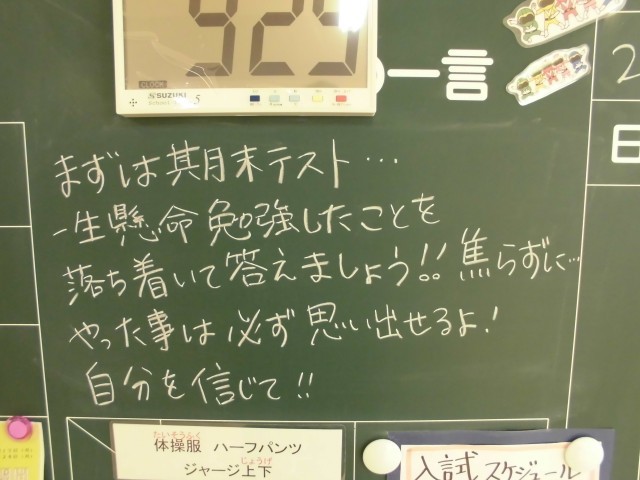 CLOCK
SUZUKI
一言
まずは期末テスト…
一生懸命勉強したことを
落ち着いて答えましょう!! 焦らずに…
やった事は必ず思い出せるよ!
自分を信じて!!
2
日
たいそうふく
体操服 ハーフパンツ
じょうげ
ジャージ上下
入試スケジュール